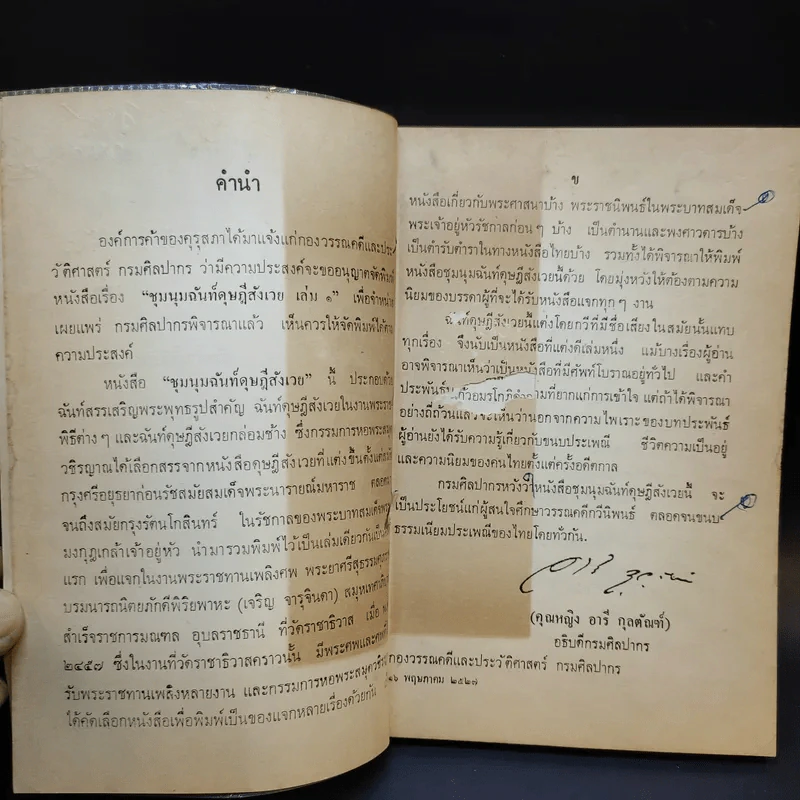 คำนำ
องค์การค้าของคุรุสภาได้มาแจ้งแก่กองวรรณคดีและประ-
วัติศาสตร์ กรมศิลปากร ว่ามีความประสงค์จะขออนุญาตจัดพิมพ์
หนังสือเรื่อง “ชุมนุมฉันท์ดุษฎีสังเวย เล่ม ๑” เพื่อจำหน่าย
เผยแพร่ กรมศิลปากรพิจารณาแล้ว เห็นควรให้จัดพิมพ์ได้ตาม
ความประสงค์
หนังสือ “ชุมนุมฉันท์ดุษฎีสังเวย” นี้ ประกอบด้วย
ฉันท์สรรเสริญพระพุทธรูปสำคัญ ฉันท์ดุษฎีสังเวยในงานพระราช
พิธีต่างๆ และฉันท์ดุษฎีสังเวยกล่อมช้าง ซึ่งกรรมการหอพระสมุด
วชิรญาณได้เลือกสรรจากหนังสือดุษฎีสังเวยที่แต่งขึ้นตั้งแต่
กรุงศรีอยุธยาก่อนรัชสมัยสมเด็จพระนารายณ์มหาราช ตลอด
จนถึงสมัยกรุงรัตนโกสินทร์ ในรัชกาลของพระบาทสมเด็จพระ
มงกุฎเกล้าเจ้าอยู่หัว นำมารวมพิมพ์ไว้เป็นเล่มเดียวกันเป็น
แรก เพื่อแจกในงานพระราชทานเพลิงศพ พระยาศรีสุธรรม
บรมนารถนิตยภักดีพิริยพาหะ (เจริญ จารุจินดา) สมุหเทศา
สำเร็จราชการมณฑล อุบลราชธานี ที่วัดราชาธิวาส เมื่อ
๒๔๕๗ ซึ่งในงานที่วัดราชาธิวาสคราวนั้น มีพระศพและศพ
รับพระราชทานเพลิงหลายงาน และกรรมการหอพระสมุดวชิร
ได้คัดเลือกหนังสือเพื่อพิมพ์เป็นของแจกหลายเรื่องด้วยกัน
ข
หนังสือเกี่ยวกับพระศาสนาบ้าง พระราชนิพนธ์ในพระบาทสมเด็จ-
พระเจ้าอยู่หัวรัชกาลก่อนๆ บ้าง เป็นตำนานและพงศาวดารบ้าง
เป็นตำรับตำราในทางหนังสือไทยบ้าง รวมทั้งได้พิจารณาให้พิมพ์
หนังสือชุมนุมฉันท์ดุษฎีสังเวยนี้ด้วย โดยมุ่งหวังให้ต้องตามความ
นิยมของบรรดาผู้ที่จะได้รับหนังสือแจกทุกๆ งาน
ฉันท์ดุษฎีสังเวยนี้แต่งโดยกวีที่มีชื่อเสียงในสมัยนั้นแทบ
ทุกเรื่อง จึงนับเป็นหนังสือที่แต่งดีเล่มหนึ่ง แม้บางเรื่องผู้อ่าน
อาจพิจารณาเห็นว่าเป็นหนังสือที่มีศัพท์โบราณอยู่ทั่วไป และคำ
ประพันธ์ ที่ยากแก่การเข้าใจ แต่ถ้าได้พิจารณา
อย่างถี่ถ้วนแล้วจะเห็นว่านอกจากความไพเราะของบทประพันธ์
ผู้อ่านยังได้รับความรู้เกี่ยวกับขนบประเพณี ชีวิตความเป็นอยู่
และความนิยมของคนไทยตั้งแต่ครั้งอดีตกาล
กรมศิลปากรหวังว่าหนังสือชุมนุมฉันท์ดุษฎีสังเวยนี้ จะ
เป็นประโยชน์แก่ผู้สนใจศึกษาวรรณคดีกวีนิพนธ์ ตลอดจนขนบ-
ธรรมเนียมประเพณีของไทยโดยทั่วกัน.
(คุณหญิง อารี กุลตัณฑ์)
อธิบดีกรมศิลปากร
กองวรรณคดีและประวัติศาสตร์ กรมศิลปากร
๑๖ พฤษภาคม ๒๕๒๗